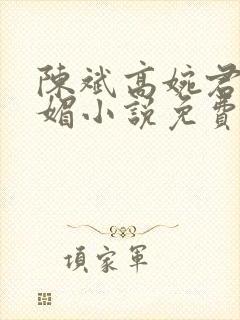 陳斌高婉君
媚小說免費
項家軍